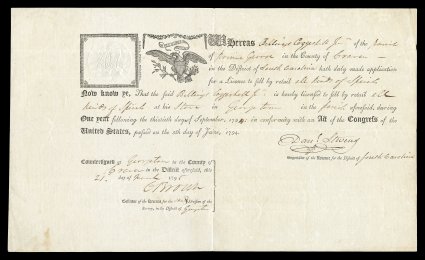 WHEREAS Billings Coggeshall Jr. of the Parish
of Prince George in the County of Craven
in the District of South Carolina hath duly made application
for a License to sell by retail all kinds of Spirits
Now know ye, That the said Billings Coggeshall Jr. is hereby licensed to sell by retail all
kinds of Spirits at his Store in Georgetown in the Parish aforesaid, during
One year following the thirtieth day of September, 1794, in conformity with an Act of the Congress of the
United States, passed on the 5th day of June, 1794.
Danl. Stevens
Supervisor of the Revenue for the District of South Carolina
Countersigned at Georgetown in the County of
Craven in the District aforesaid, this
21 day of 1795
C Brown
Collector of the Revenue for the Division of the
Survey, in the District of